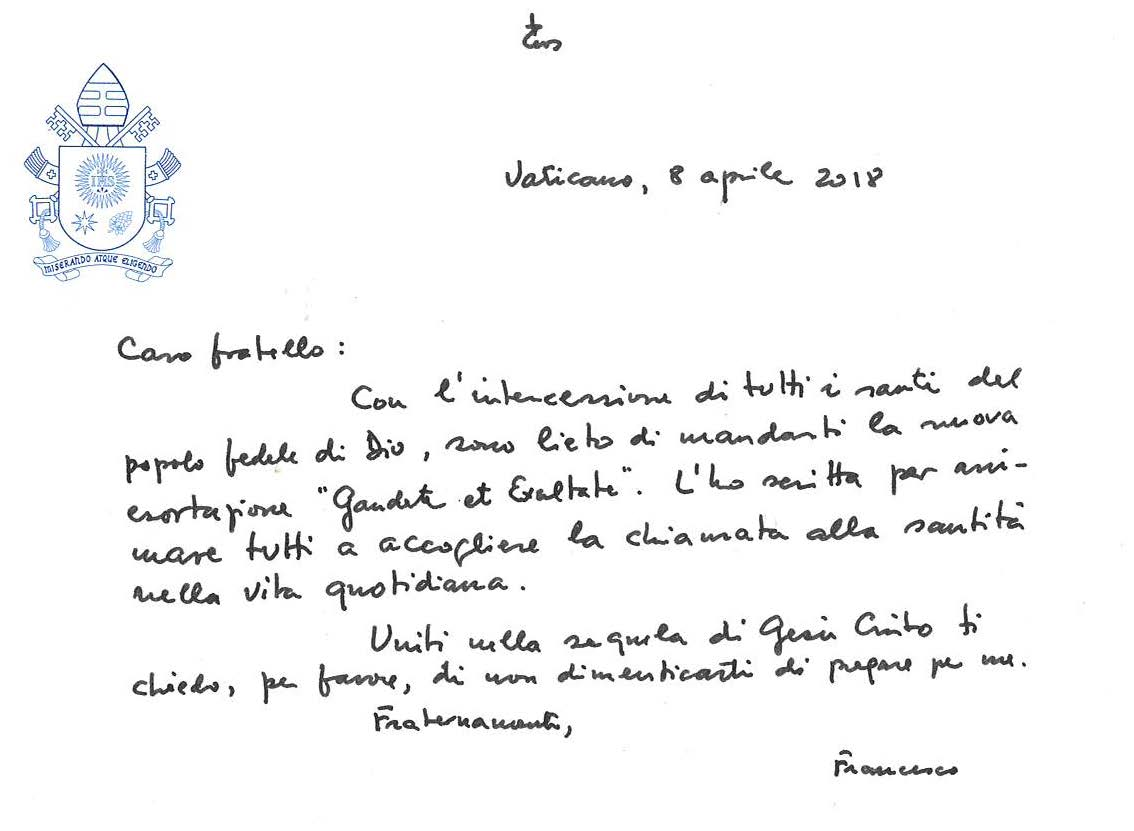 IHS
MISERANDO ATQUE ELIGENDO
Vaticano, 8 aprile 2018
Caro fratello :
Con l'intercessione di tutti i santi del
popolo fedele di Dio, sono lieto di mandarti la nuova
esortazione "Gaudete et Exultate". L'ho scritta per ani-
mare tutti a accogliere la chiamata alla santità
nella vita quotidiana.
Uniti nella sequela di Gesù Cristo ti
chiedo, per favore, di non dimenticarti di pregare per me.
Fraternamente,
Francesco